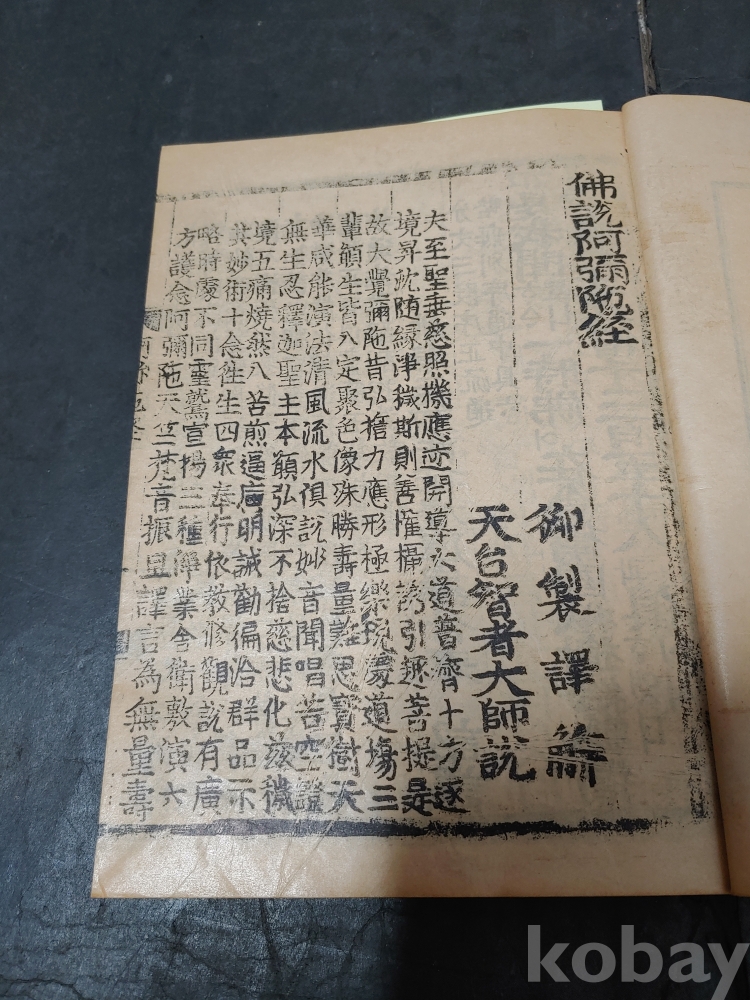 佛說阿彌陁經
御製譯
天台智者大師說
夫至聖垂慈照機應迹開導之道普濟十方逐
境昇沈随緣淨穢斯則善權攝誘引趣菩提是
故大覺彌陁昔弘擔力應形極樂現處道場三
輩願生皆入定聚色像殊勝壽量難思寶樹天
華咸能演法清風流水俱說妙音聞唱苦空證
無生忍釋迦聖主本願弘深不捨慈悲化兹穢
境五痛燒然八苦煎逼唐明誠勸偏洽群品示
其妙術十念徃生四衆奉行依教修觀說有廣
略時處不同靈鷲宣揚三種淨業舍衛敷演六
方護念阿彌陁天竺梵音振旦譯言為無量壽
kobay